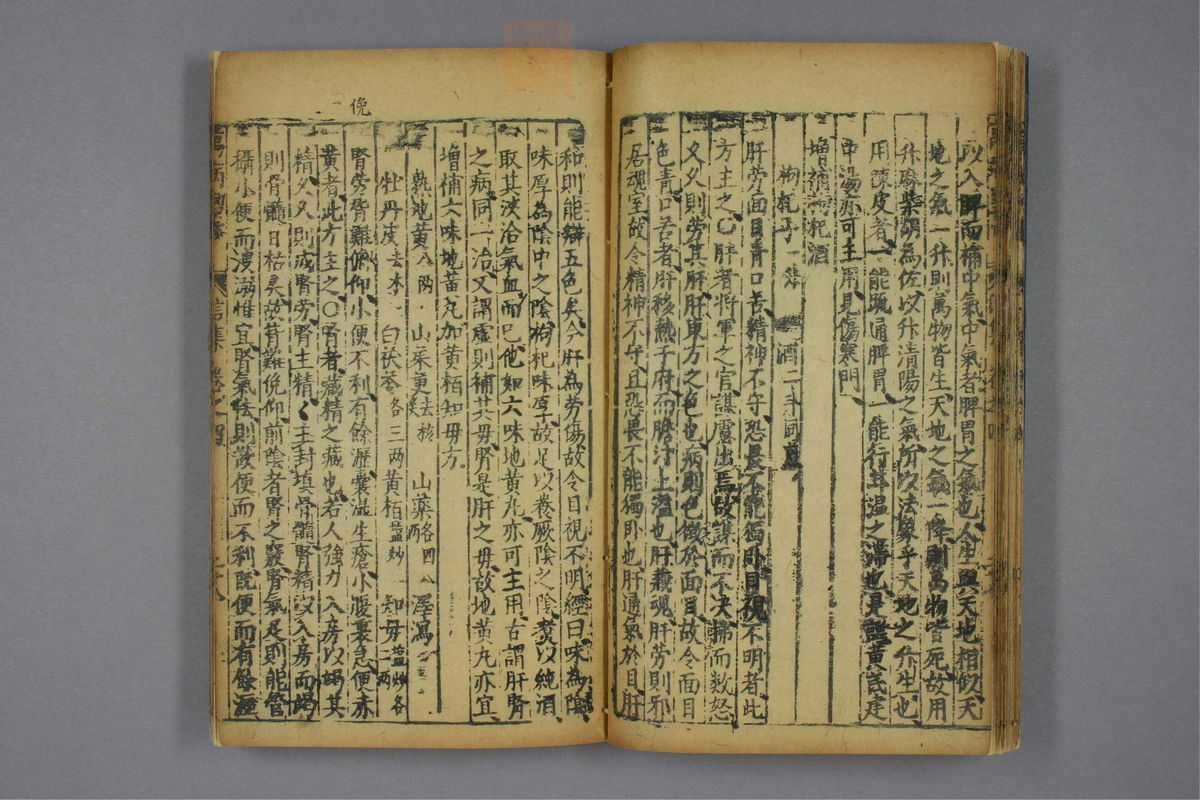 以入脾而補中氣中氣者脾胃之氣也人生與天地相似天
地之氣一升則萬物皆生天地之氣一降則萬物皆死故用
升麻柴胡為佐以升清陽之氣所以法象乎天地之升生也
用陳皮者一能疏通脾胃一能行甘溫之滯也是證黃芪建
中湯亦可主用見傷寒門
增補枸杞酒
枸杞子一 酒二 同
肝勞面目青口苦精神不守恐畏不能獨臥目視不明者此
方主之〇肝者將軍之官謀慮出焉故謀而不決拂而數怒
久久則勞其肝肝東方之色也病則色徵於面目故令面目
色青口苦者肝移熱于府而膽汁上溢也肝藏魂肝勞則邪
居魂室故令精神不守且恐畏不能獨臥也肝通氣於目肝
和則能辯五色矣今肝為勞傷故令目視不明經曰味為陰
味厚為陰中之陰枸杞味厚故足以養厥陰之陰煮以純酒
取其浹洽氣血而已他如六味地黃丸亦可主用古謂肝腎
之病同一治又謂虛則補其母腎是肝之母故地黃丸亦宜
增補六味地黃丸加黃栢知母方
熟地黃八兩 山茱萸去核 山藥各四兩 澤瀉
牡丹皮去木 白茯苓各三兩 黃栢鹽炒 知母鹽炒各二兩
腎勞背難俛仰小便不利有餘瀝囊濕生瘡小腹裏急便赤
黃者此方主之〇腎者藏精之藏也若人強力入房以竭其
精久久則成腎勞腎主精精主封填骨髓腎精以入房而竭
則骨髓日枯矣故背難俛仰前陰者腎之竅腎氣足則能管
攝小便而溲滿惟宜腎氣怯則欲便而不利既便而有餘瀝
俛